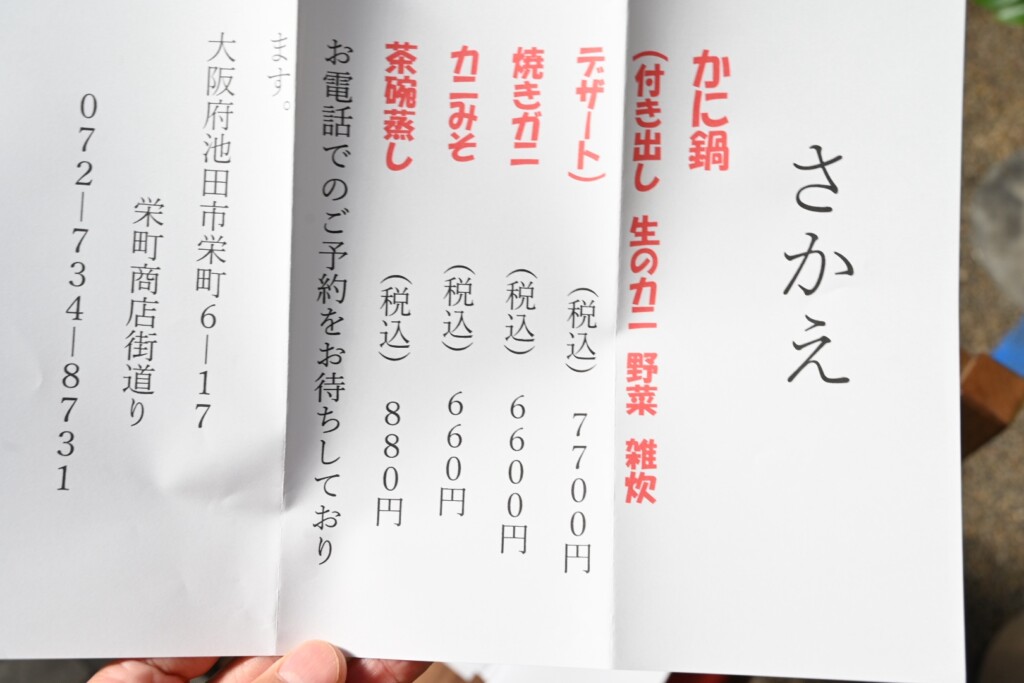 さかえ
かに鍋
（付き出し　生のカニ　野菜　雑炊
デザート）　（税込）　７７００円
焼きガニ　（税込）　６６００円
カニみそ　（税込）　６６０円
茶碗蒸し　（税込）　８８０円
お電話でのご予約をお待ちしており
ます。
大阪府池田市栄町６―１７
栄町商店街道り
０７２―７３４―８７３１